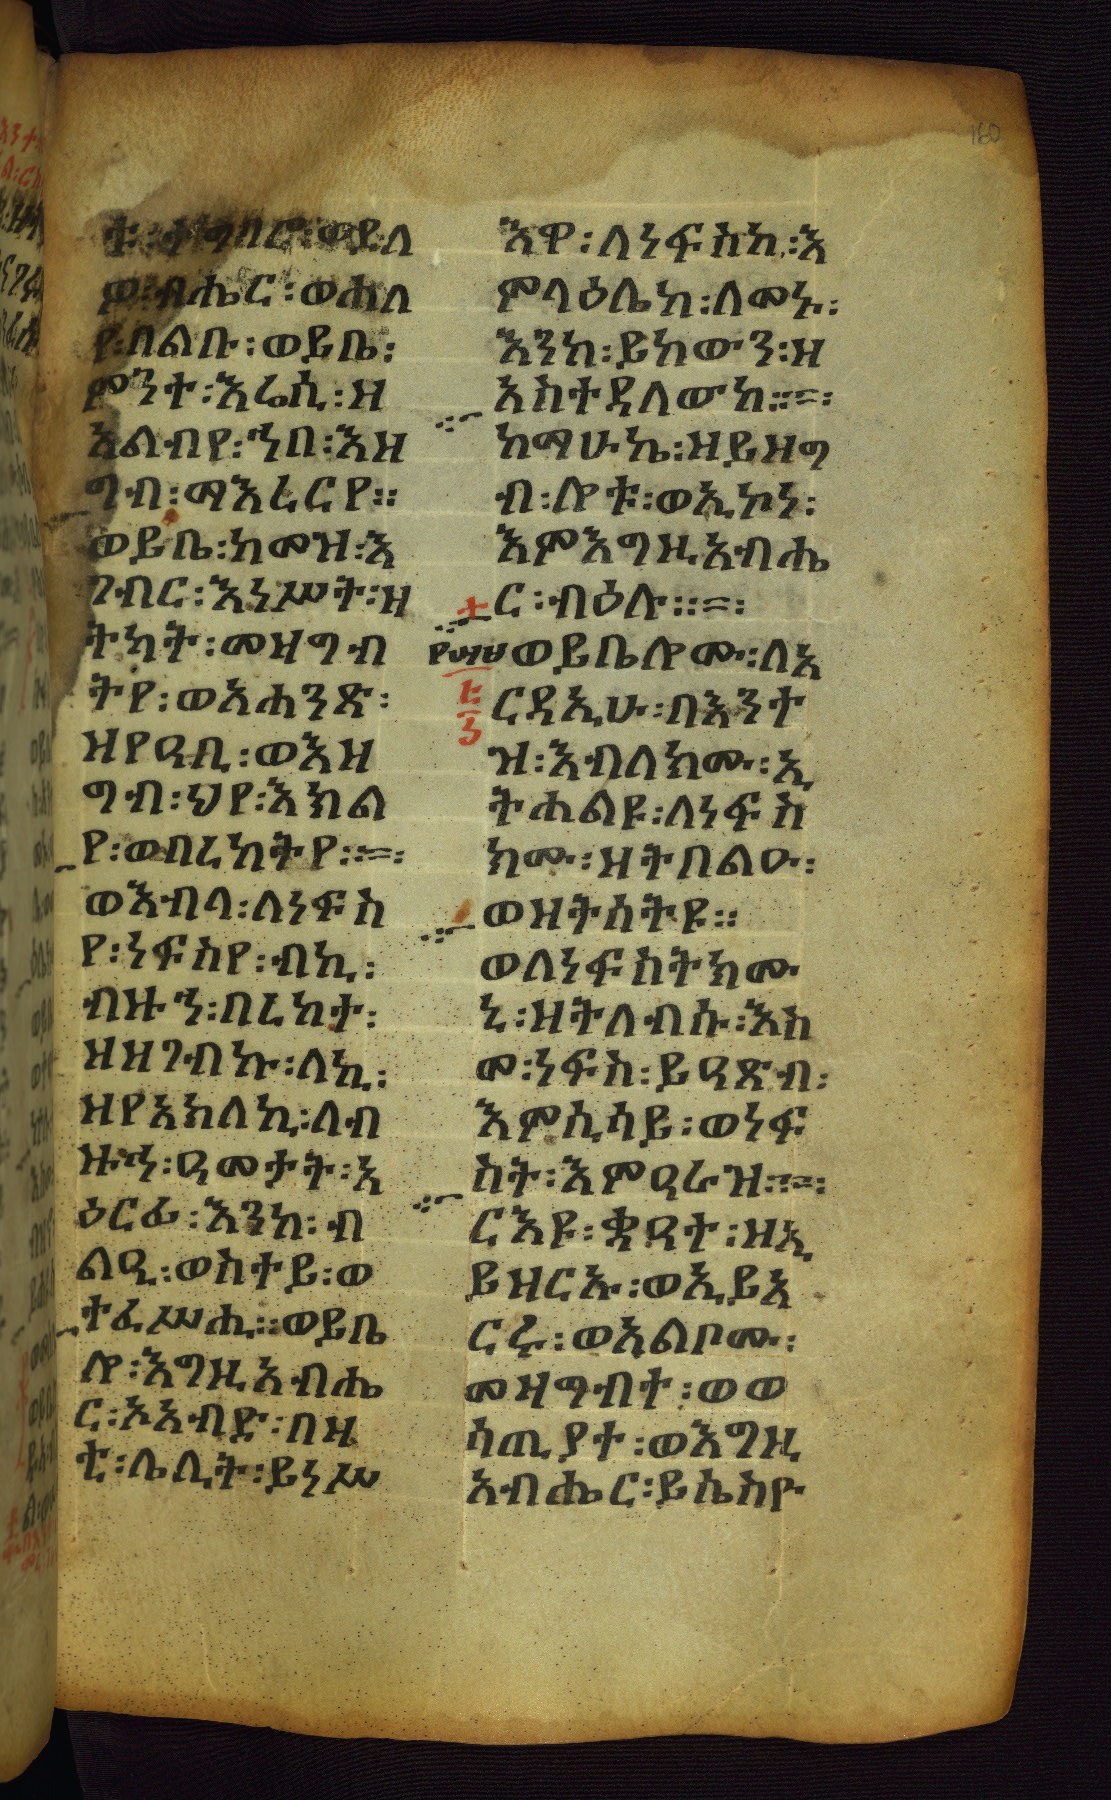 160
ወ፡ብሔር፡ወሐለ
የ፡በልቡ፡ወይቤ፡
ምንተ፡እሬሲ፡ዘ
አልብየ፡ኀበ፡እዘ
ግብ፡ማእረርየ፡፡
ወይቤ፡ከመዝ፡እ
ገብር፡እነሥት፡ዘ
ትካት፡መዛግብ
ትየ፡ወአሐንጽ፡
ዘየዐቢ፡ወእዘ
ግብ፡ህየ፡እክል
የ፡ወበረከትየ፡፡=፡
ወእብላ፡ለነፍስ
የ፡ነፍስየ፡ብኪ፡
ብዙኀ፡በረከተ፡
ዘዘገብኩ፡ለኪ፡
ዘየአክለኪ፡ለብ
ዙኀ፡ዓመታት፡አ
ዕርፊ፡እንከ፡ብ
ልዒ፡ወስተይ፡ወ
ተፈሥሒ፡፡ወይቤ
ሎ፡እግዚአብሔ
ር፡ኦአብድ፡በዛ
ቲ፡ሌሊት፡ይነሥ
እዋ፡ለነፍስከ፡እ
ምላዕሌከ፡ለመኑ፡
እንከ፡ይከውን፡ዘ
አስተዳለውከ፡፡=፡
ከማሁኬ፡ዘይዘግ
ብ፡ሎቱ፡ወኢኮነ፡
እምእግዚአብሔ
ር፡ብዕሉ፡፡=፡
ወይቤሎሙ፡ለአ
ርዳኢሁ፡በእንተ
ዝ፡እብለክሙ፡ኢ
ትሐልዩ፡ለነፍስ
ክሙ፡ዘትበልዑ፡
ወዘትሰትዩ፡፡
ወለነፍስትክሙ
ኒ፡ዘትለብሱ፡እስ
መ፡ነፍስ፡ይዐጽብ፡
እምሲሳይ፡ወነፍ
ስት፡እምዐራዝ፡፡=፡
ርእዩ፡ቋዓተ፡ዘኢ
ይዘርኡ፡ወኢይአ
ርሩ፡ወአልቦሙ፡
መዛግብተ፡ወወ
ሳጢያተ፡ወእግዚ
አብሔር፡ይሴስዮ